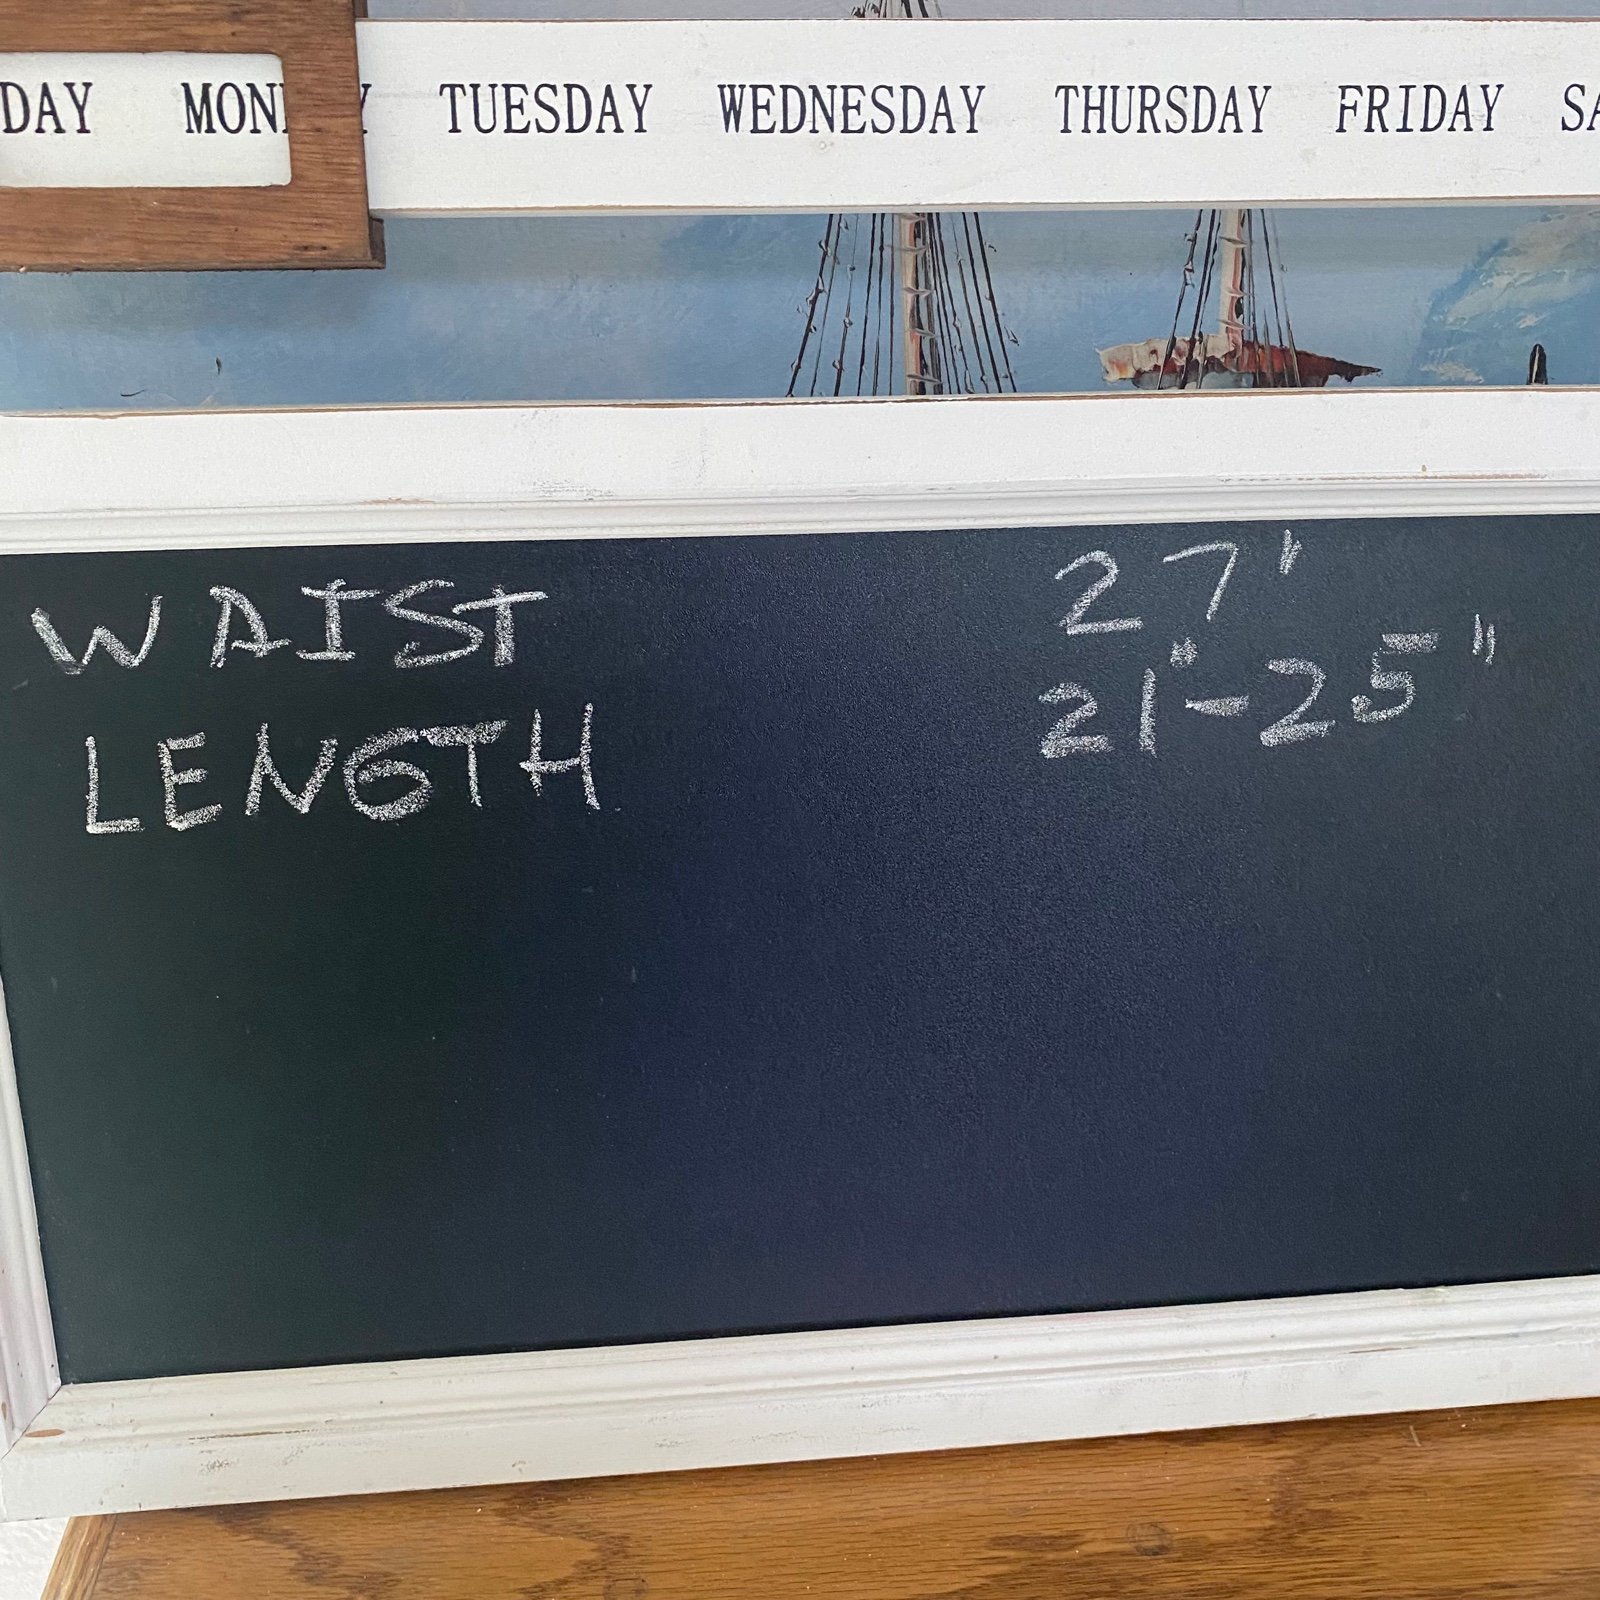 DAY MON Y TUESDAY WEDNESDAY THURSDAY FRIDAY SA
WAIST 27"
LENGTH 21"-25"